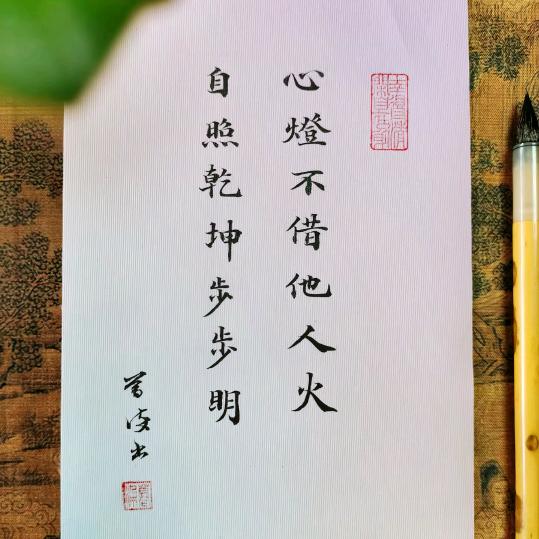 心燈不借他人火
自照乾坤步步明